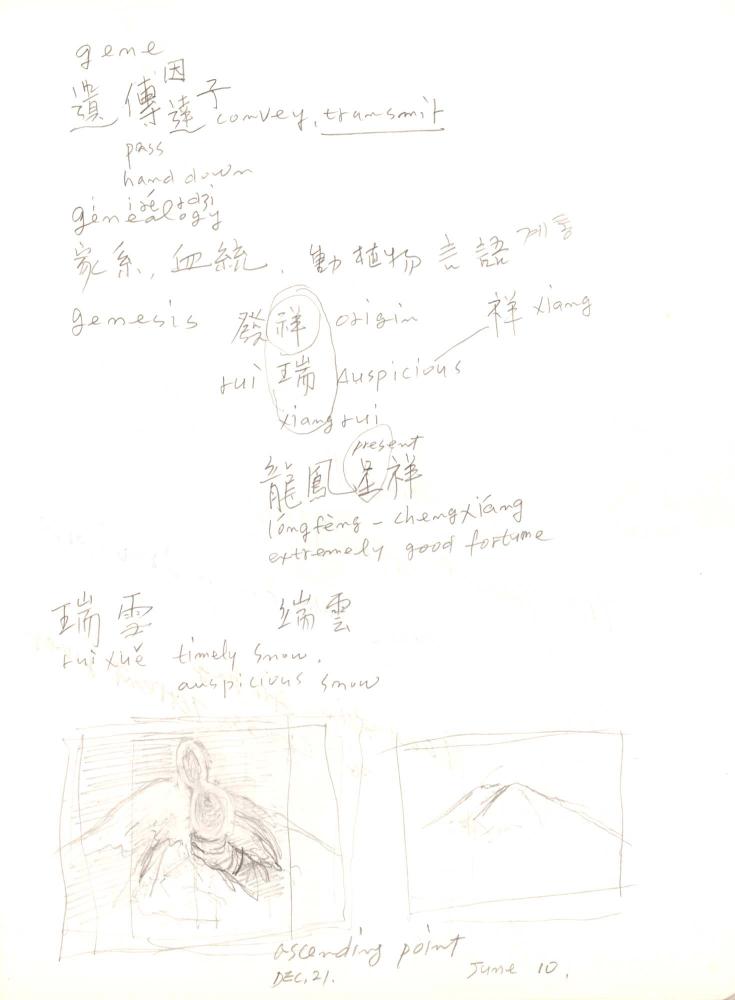 gene
因
遺傳達子 convey, transmit
pass
hand down
genealogy
家系, 血統, 動植物 言語 계통
genesis 發祥 origin 祥 xiang
rui 瑞 Auspicious
xiang rui
present
龍鳳呈祥
lóngfèng - chengxiáng
extremely good fortune
瑞雪 瑞雲
ruì xuě timely snow.
auspicious snow
ascending point
DEC, 21. June 10.